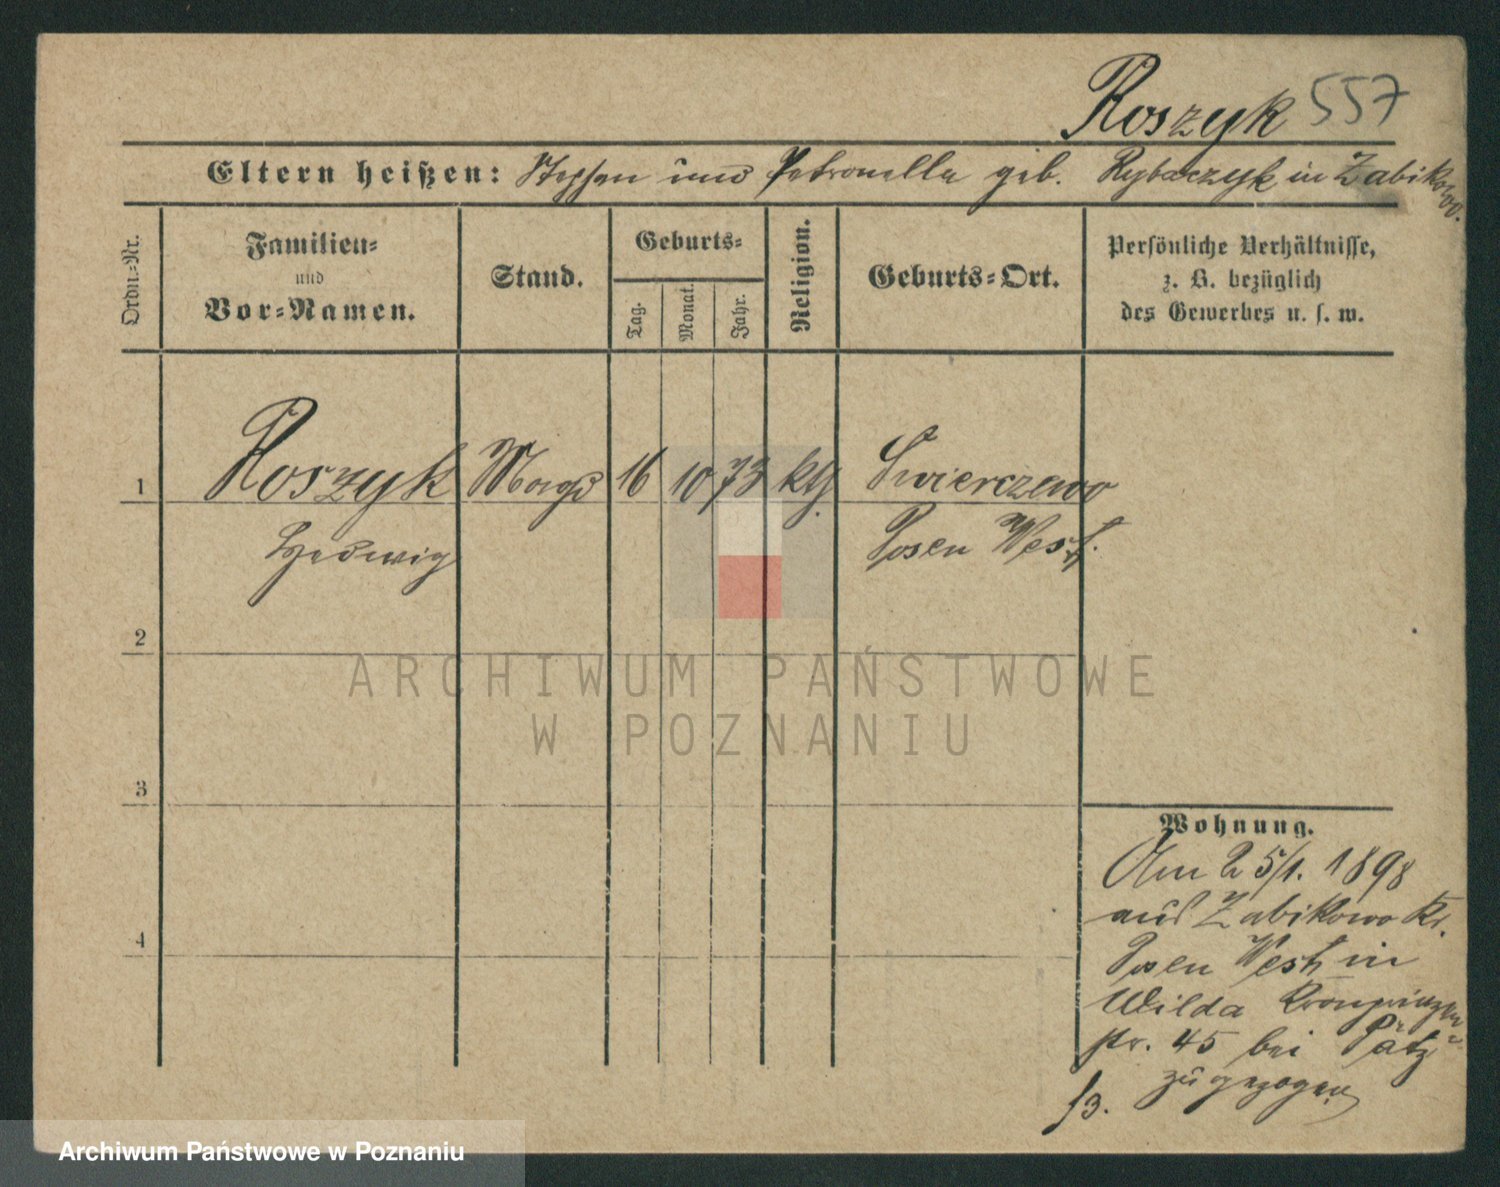 Roszyk 557
Eltern heißen: Stephan und Petronella geb. Rybaczyk in Zabikowo.
Ordn.-Nr.
Familien-
und
Vor-Namen.
Stand.
Geburts-
Tag.
Monat.
Jahr.
Religion.
Geburts-Ort.
Persönliche Verhältnisse,
z. B. bezüglich
des Gewerbes u. s. w.
1 Roszyk Magd 16 10 73 kth Swierczewo
Hedwig Posen West.
2
ARCHIWUM PAŃSTWOWE
W POZNANIU
3
Wohnung.
Am 25/1. 1898
aus Zabikowo Kr.
4
Posen West in
Wilda Kronprinzen-
str. 45 bei Pätz
zugezogen
Archiwum Państwowe w Poznaniu